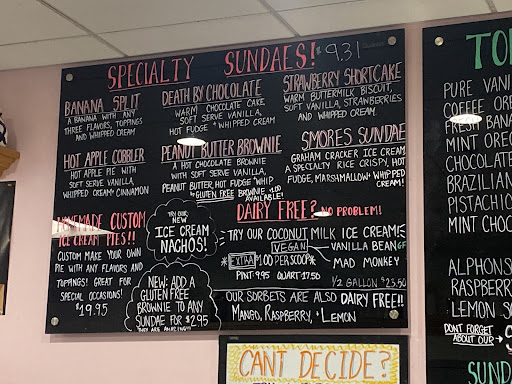 SPECIALTY SUNDAES! $9.31
BANANA SPLIT
A BANANA WITH ANY
THREE FLAVORS, TOPPINGS
AND WHIPPED CREAM
DEATH BY CHOCOLATE
WARM CHOCOLATE CAKE
SOFT SERVE VANILLA,
HOT FUDGE + WHIPPED CREAM
STRAWBERRY SHORTCAKE
WARM BUTTERMILK BISCUIT,
SOFT VANILLA, STRAWBERRIES
AND WHIPPED CREAM.
HOT APPLE COBBLER
HOT APPLE PIE WITH
SOFT SERVE VANILLA,
WHIPPED CREAM + CINNAMON
PEANUT BUTTER BROWNIE
A HOT CHOCOLATE BROWNIE
WITH SOFT SERVE VANILLA,
PEANUT BUTTER, HOT FUDGE + WHIP
GLUTEN FREE BROWNIE ALSO
AVAILABLE!
SMORES SUNDAE
GRAHAM CRACKER ICE CREAM
A SPECIALTY RICE CRISPY, HOT
FUDGE, MARSHMALLOW + WHIPPED
CREAM!
HOMEMADE CUSTOM
ICE CREAM PIES!!
CUSTOM MAKE YOUR OWN
PIE WITH ANY FLAVORS AND
TOPPINGS! GREAT FOR
SPECIAL OCCASIONS!
$19.95
TRY OUR
NEW
ICE CREAM
NACHOS!
NEW: ADD A
GLUTEN FREE
BROWNIE TO ANY
SUNDAE FOR $2.95
THEY ARE AMAZING!!
DAIRY FREE? NO PROBLEM!
TRY OUR COCONUT MILK ICE CREAM
VEGAN
VANILLA BEAN GF
*EXTRA $1.00 PER SCOOP*
MAD MONKEY
PINT 9.95 QUART 17.50
1/2 GALLON $23.50
OUR SORBETS ARE ALSO DAIRY FREE!!
MANGO, RASPBERRY, + LEMON
TO
PURE VANI
COFFEE ORE
FRESH BANA
MINT OREO
CHOCOLATE
BRAZILIAN
PISTACHIO
MINT CHOC
ALPHONS
RASPBERR
LEMON SO
DON'T FORGET
ABOUT OUR
SUND
CAN'T DECIDE?